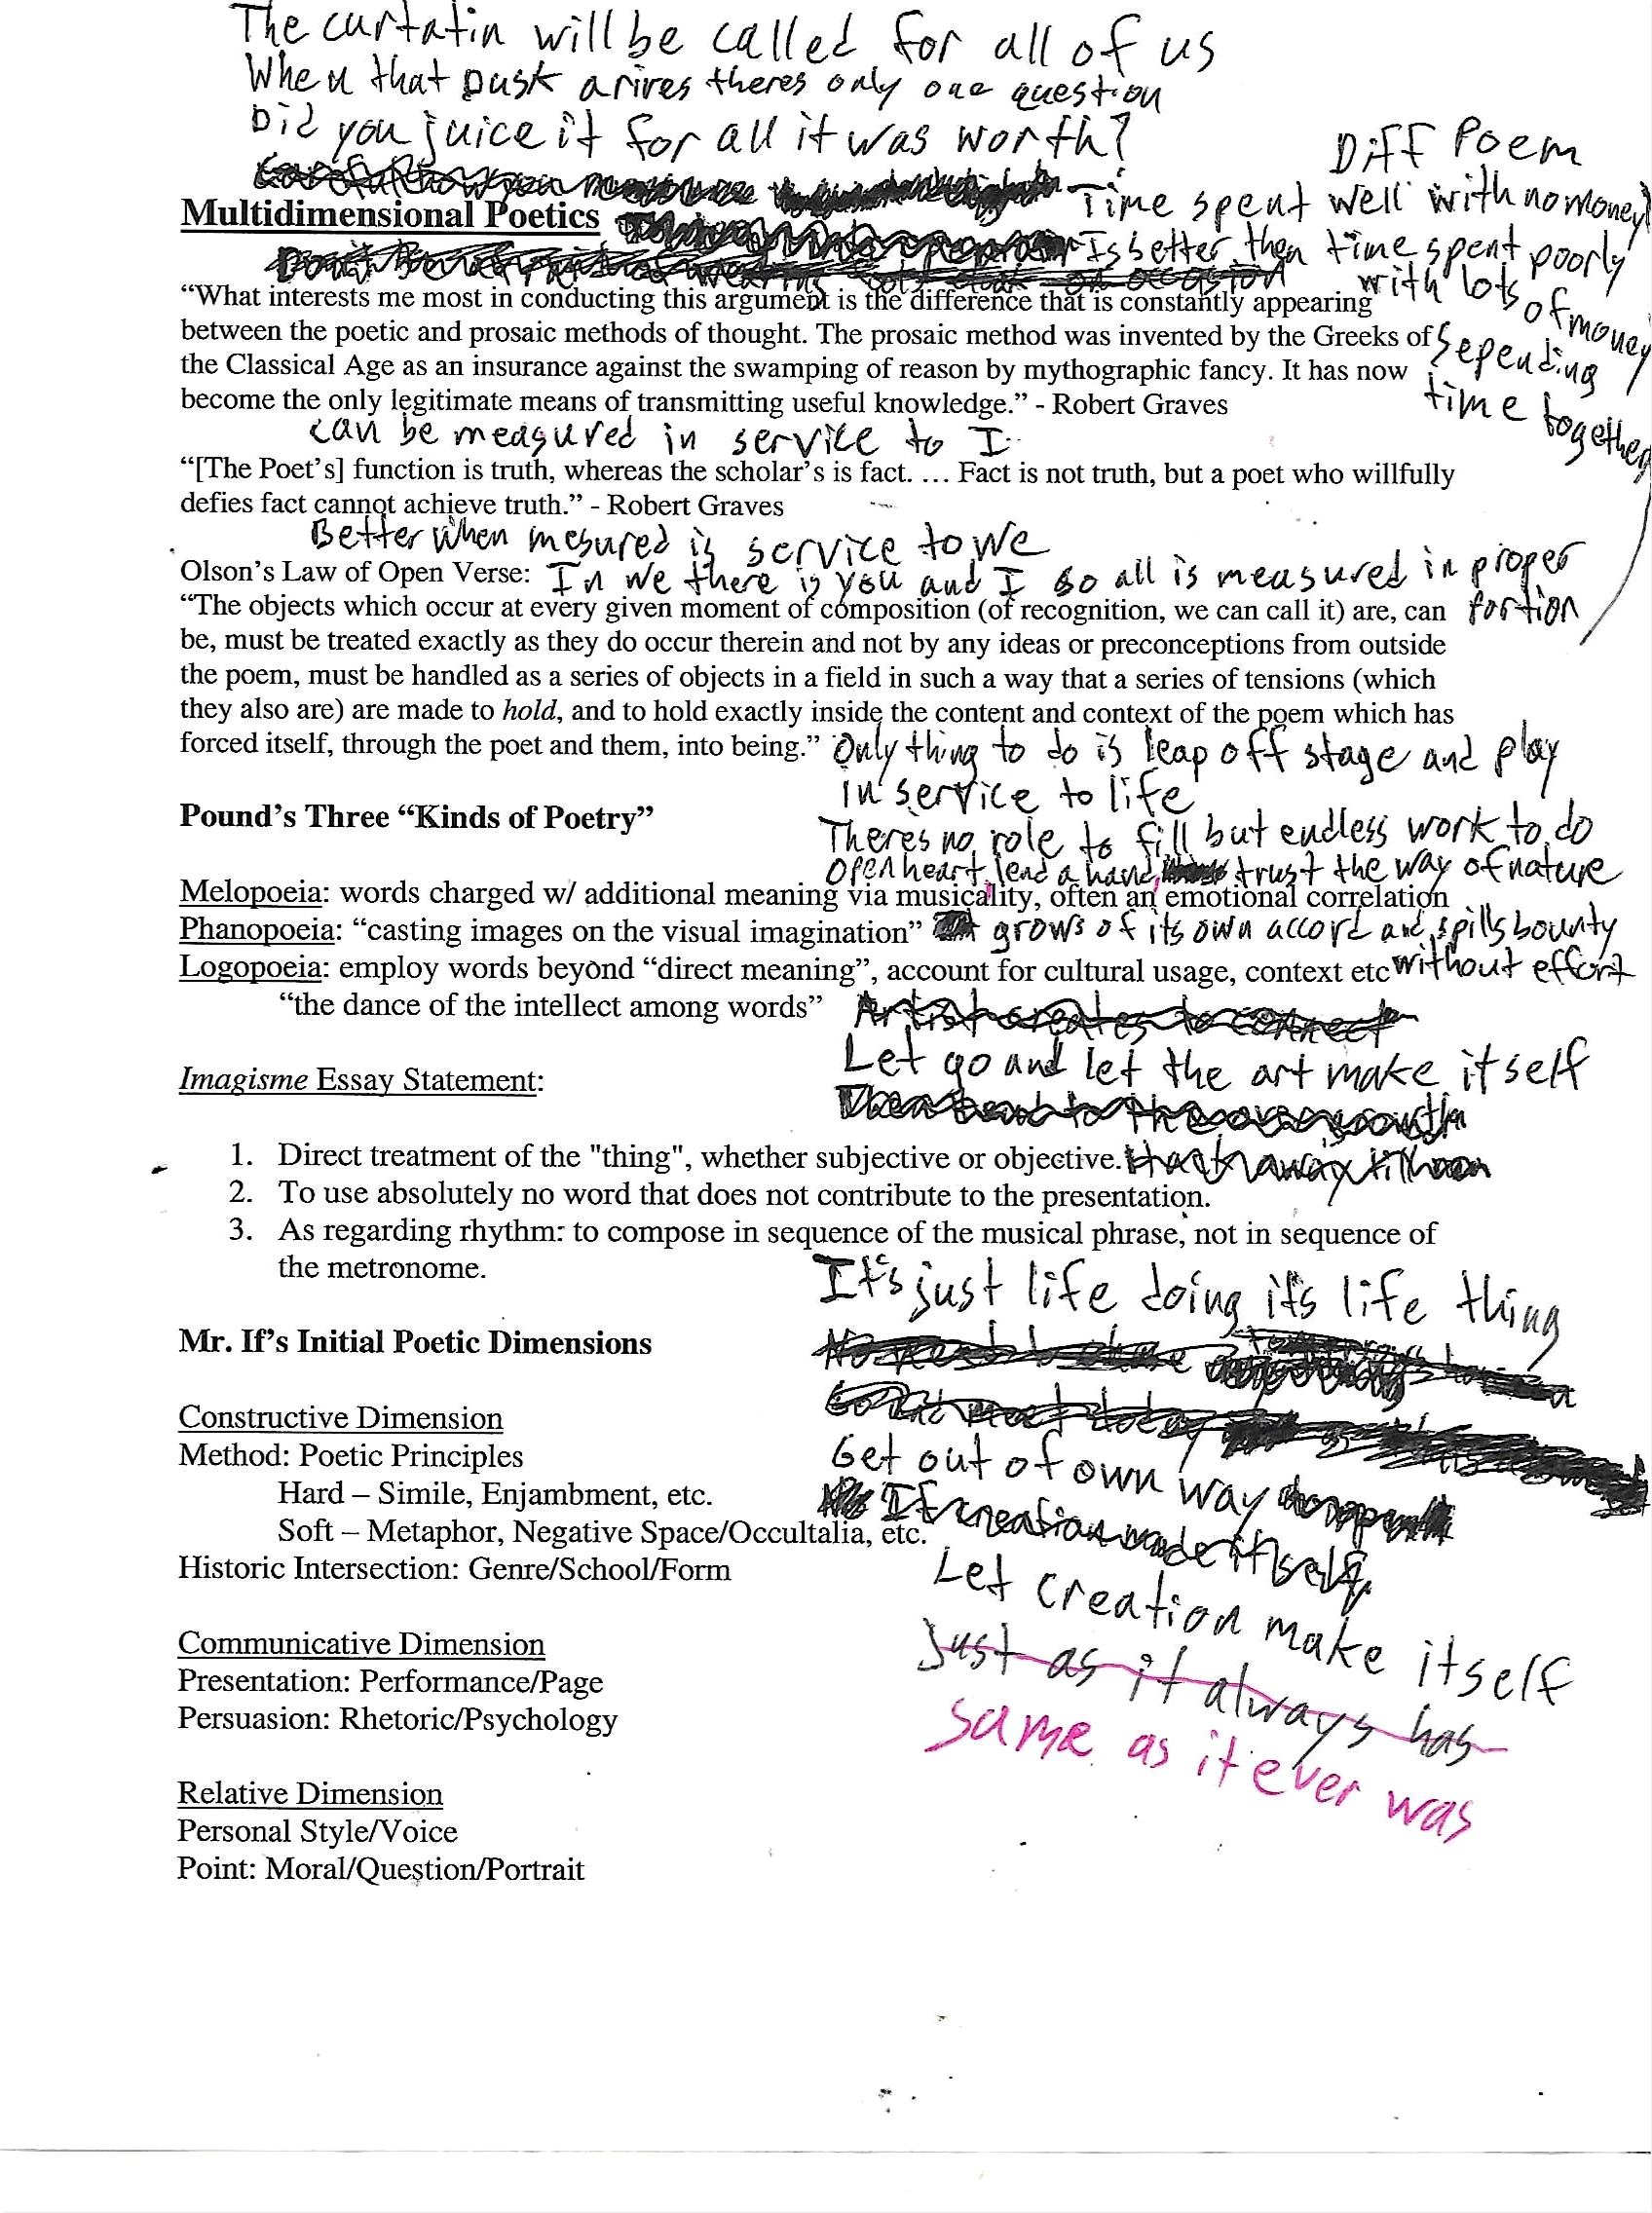 The curtatin will be called for all of us
When that Dusk arives theres only one question
Did you juice it for all it was worth?
Diff Poem
Time spent well with no money
Is better then time spent poorly
with lots of money
Sepending
time together
Multidimensional Poetics
“What interests me most in conducting this argument is the difference that is constantly appearing
between the poetic and prosaic methods of thought. The prosaic method was invented by the Greeks of
the Classical Age as an insurance against the swamping of reason by mythographic fancy. It has now
become the only legitimate means of transmitting useful knowledge.” - Robert Graves
can be measured in service to I
“[The Poet’s] function is truth, whereas the scholar’s is fact. … Fact is not truth, but a poet who willfully
defies fact cannot achieve truth.” - Robert Graves
Better when mesured is service to we
Olson’s Law of Open Verse: In we there is you and I so all is measured in proper
portion
“The objects which occur at every given moment of composition (of recognition, we can call it) are, can
be, must be treated exactly as they do occur therein and not by any ideas or preconceptions from outside
the poem, must be handled as a series of objects in a field in such a way that a series of tensions (which
they also are) are made to hold, and to hold exactly inside the content and context of the poem which has
forced itself, through the poet and them, into being.” Only thing to do is leap off stage and play
in service to life
Pound’s Three “Kinds of Poetry”
Theres no role to fill but endless work to do
Open heart, lend a hand, trust the way of nature
Melopoeia: words charged w/ additional meaning via musicality, often an emotional correlation
Phanopoeia: “casting images on the visual imagination” grows of its own accord and spills bounty
Logopoeia: employ words beyond “direct meaning”, account for cultural usage, context etc without effort
“the dance of the intellect among words” Artist creates to connect
Let go and let the art make itself
Imagisme Essay Statement:
1. Direct treatment of the "thing", whether subjective or objective.
2. To use absolutely no word that does not contribute to the presentation.
3. As regarding rhythm: to compose in sequence of the musical phrase, not in sequence of
the metronome.
It's just life doing it's life thing
Mr. If’s Initial Poetic Dimensions
Constructive Dimension
Method: Poetic Principles
Get out of own way
Hard – Simile, Enjambment, etc.
Soft – Metaphor, Negative Space/Occultalia, etc.
If creation made itself
Historic Intersection: Genre/School/Form
Let creation make itself
Just as it always has
same as it ever was
Communicative Dimension
Presentation: Performance/Page
Persuasion: Rhetoric/Psychology
Relative Dimension
Personal Style/Voice
Point: Moral/Question/Portrait